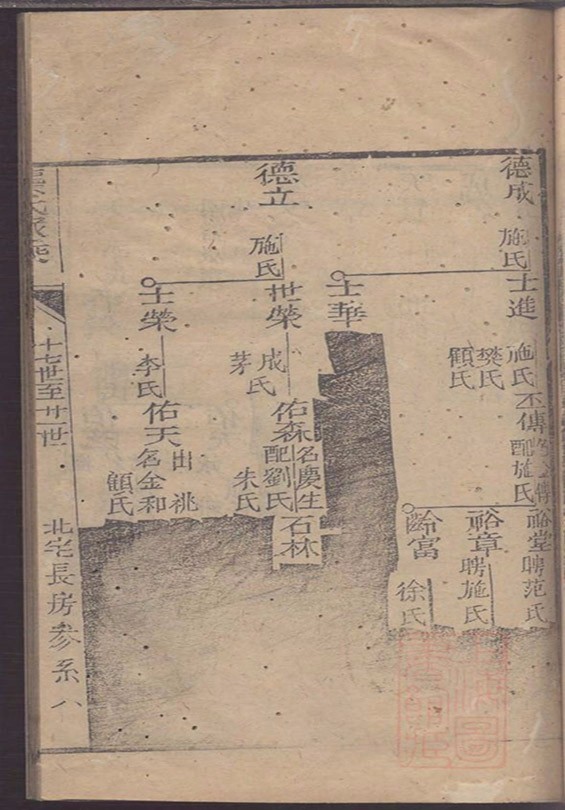 德成
施氏
士進
施氏
樊氏
顧氏
丕傳
配施氏
裕堂
聘范氏
裕章
聘施氏
齡富
徐氏
士華
德立
施氏
世榮
成氏
茅
佑森
名慶生
配劉氏
朱氏
石林
士榮
李氏
佑天
出祧
名金和
顧氏
十七世至廿一世
北宅長房參系八